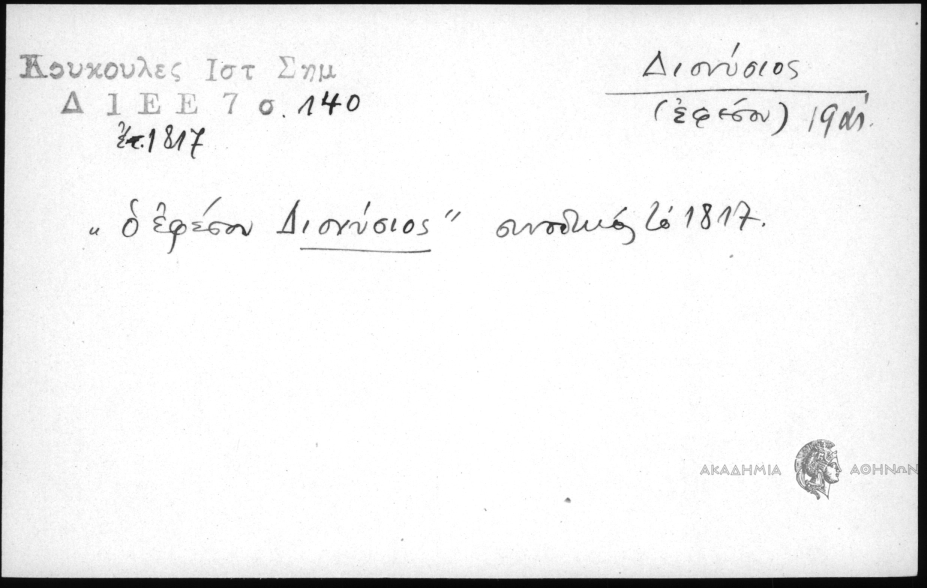 Κουκουλες Ιστ Σημ
Δ Ι Ε Ε 7 σ. 140
ἔτ. 1817
Διονύσιος
(ἐφέσου) 19 αἰ.
„ ὁ ἐφέσου Διονύσιος " συνοδικός τὸ 1817.
ΑΚΑΔΗΜΙΑ ΑΘΗΝΩΝ